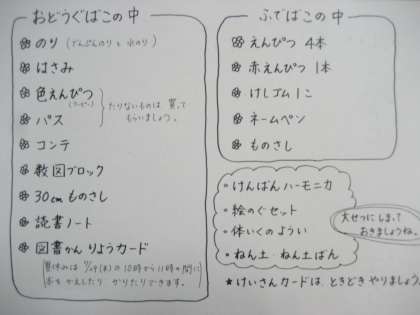 おどうぐばこの中
のり(でんぷんのりと水のり)
はさみ
色えんぴつ
(クーピー)
パス
たりないものは買って
もらいましょう。
コンテ
数図ブロック
30cmものさし
読書ノート
図書かんりようカード
夏休みは7/29(木)の10時から11時の間に
本をかえしたり かりたりできます。
ふでばこの中
えんぴつ 4本
赤えんぴつ 1本
けしゴム1こ
ネームペン
ものさし
・けんばんハーモニカ
・絵のぐセット
・体いくのようい
・ねん土・ねん土ばん
大せつにしまって
おきましょうね。
★けいさんカードは、ときどきやりましょう